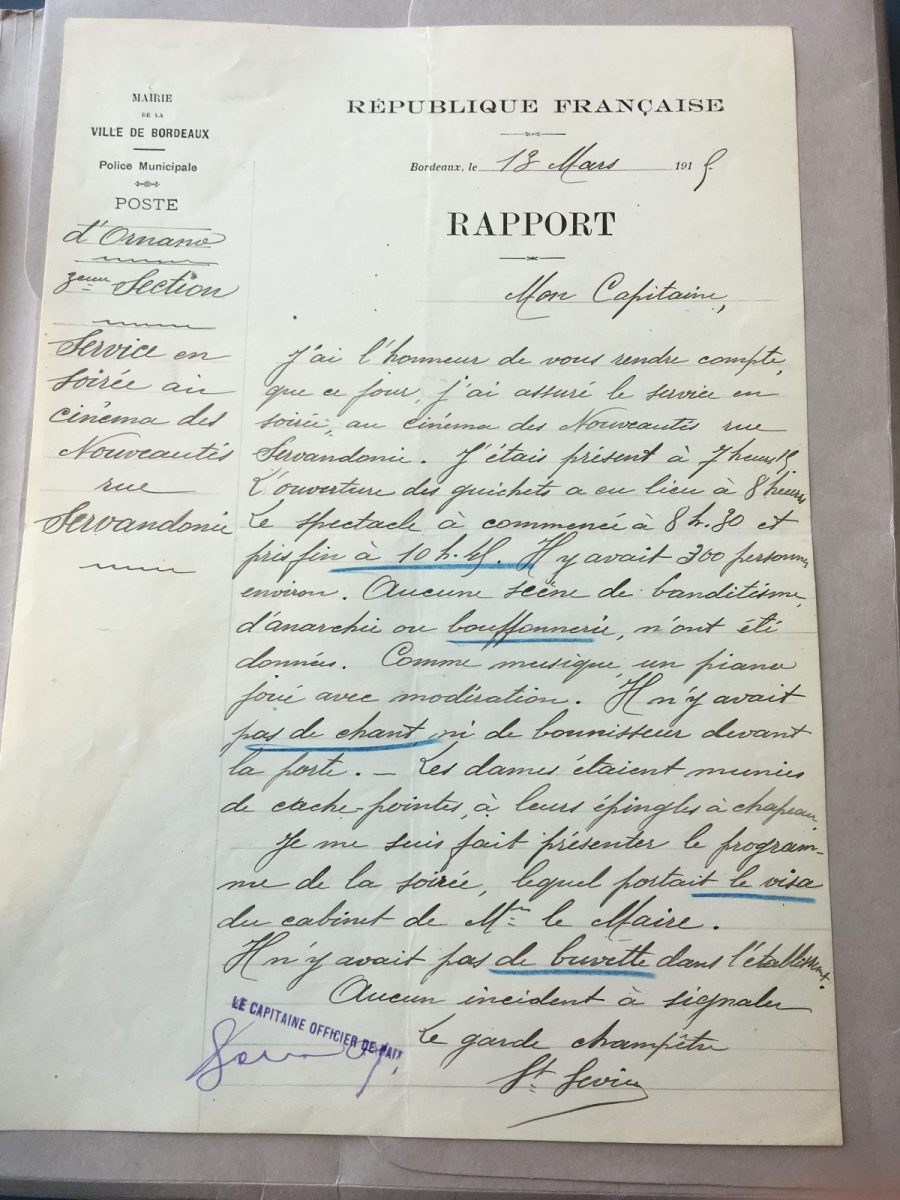 MAIRIE
DE LA
VILLE DE BORDEAUX
Police Municipale
POSTE
d'Ornano
3eme Section
Service en
soirée au
cinéma des
Nouveautés
rue
Servandonie
RÉPUBLIQUE FRANÇAISE
Bordeaux, le 13 Mars 1915
RAPPORT
Mon Capitaine,
J'ai l'honneur de vous rendre compte,
que ce jour, j'ai assuré le service en
soirée, au cinéma des Nouveautés rue
Servandonie. J'étais présent à 7 heures 15
L'ouverture des guichets a eu lieu à 8 heures
Le spectacle à commencé à 8 h. 30 et
pris fin à 10 h. 45. Il y avait 300 personnes
environ. Aucune scène de banditisme,
d'anarchie ou bouffonnerie, n'ont été
données. Comme musique, un piano
joué avec modération. Il n'y avait
pas de chant, ni de bonnisseur devant
la porte. — Les dames étaient munies
de cache-pointes, à leurs épingles à chapeau.
Je me suis fait présenter le program-
me de la soirée, lequel portait le visa
du cabinet de Mr le Maire.
Il n'y avait pas de buvette dans l'établissement.
Aucun incident à signaler
Le garde champêtre
LE CAPITAINE OFFICIER DE PAIX
St Sevin